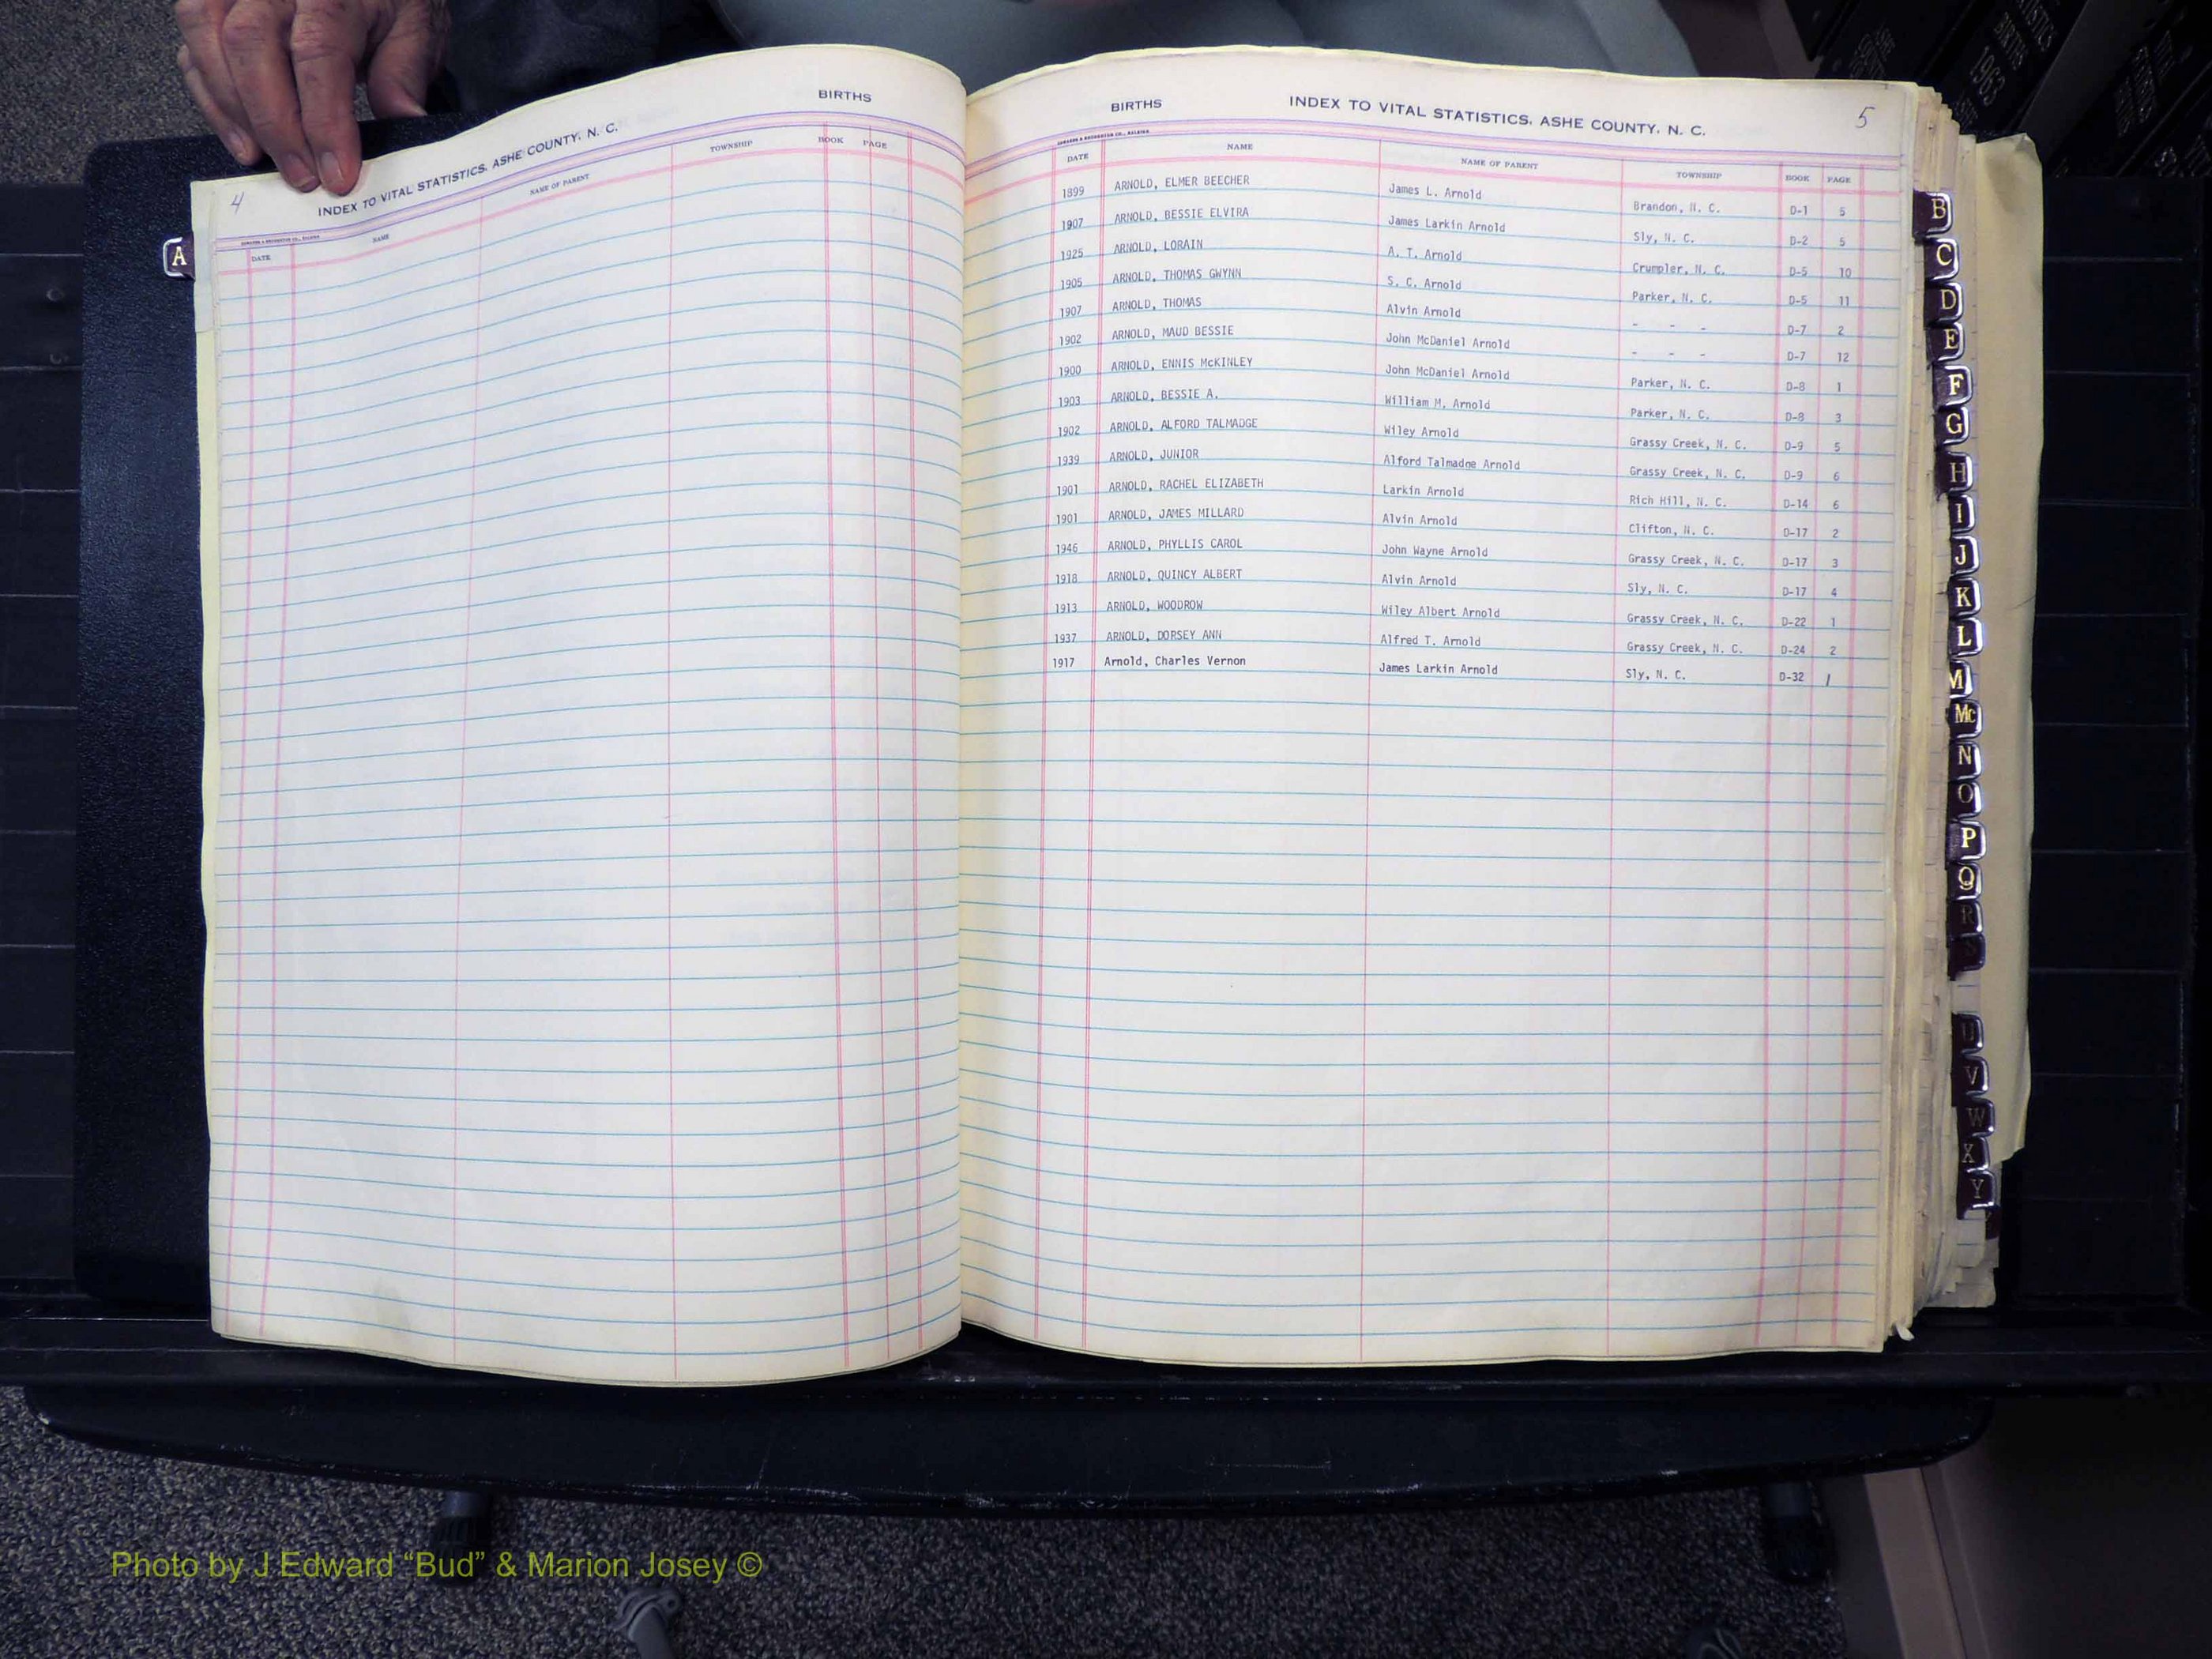 4
BIRTHS
INDEX TO VITAL STATISTICS, ASHE COUNTY, N. C.
DATE NAME NAME OF PARENT TOWNSHIP BOOK PAGE
A
BIRTHS INDEX TO VITAL STATISTICS, ASHE COUNTY, N. C. 5
DATE NAME NAME OF PARENT TOWNSHIP BOOK PAGE
1899 ARNOLD, ELMER BEECHER James L. Arnold Brandon, N. C. D-1 5
1907 ARNOLD, BESSIE ELVIRA James Larkin Arnold Sly, N. C. D-2 5
1925 ARNOLD, LORAIN A. T. Arnold Crumpler, N. C. D-5 10
1905 ARNOLD, THOMAS GWYNN S. C. Arnold Parker, N. C. D-5 11
1907 ARNOLD, THOMAS Alvin Arnold - - - D-7 2
1902 ARNOLD, MAUD BESSIE John McDaniel Arnold - - - D-7 12
1900 ARNOLD, ENNIS McKINLEY John McDaniel Arnold Parker, N. C. D-8 1
1903 ARNOLD, BESSIE A. William M. Arnold Parker, N. C. D-8 3
1902 ARNOLD, ALFORD TALMADGE Wiley Arnold Grassy Creek, N. C. D-9 5
1939 ARNOLD, JUNIOR Alford Talmadge Arnold Grassy Creek, N. C. D-9 6
1901 ARNOLD, RACHEL ELIZABETH Larkin Arnold Rich Hill, N. C. D-14 6
1901 ARNOLD, JAMES MILLARD Alvin Arnold Clifton, N. C. D-17 2
1946 ARNOLD, PHYLLIS CAROL John Wayne Arnold Grassy Creek, N. C. D-17 3
1918 ARNOLD, QUINCY ALBERT Alvin Arnold Sly, N. C. D-17 4
1913 ARNOLD, WOODROW Wiley Albert Arnold Grassy Creek, N. C. D-22 1
1937 ARNOLD, DORSEY ANN Alfred T. Arnold Grassy Creek, N. C. D-24 2
1917 Arnold, Charles Vernon James Larkin Arnold Sly, N. C. D-32 1
B
C
D
E
F
G
H
I
J
K
L
M
Mc
N
O
P
Q
R
S
U
V
W
X
Y
BIRTHS
1963
Photo by J Edward “Bud” & Marion Josey ©